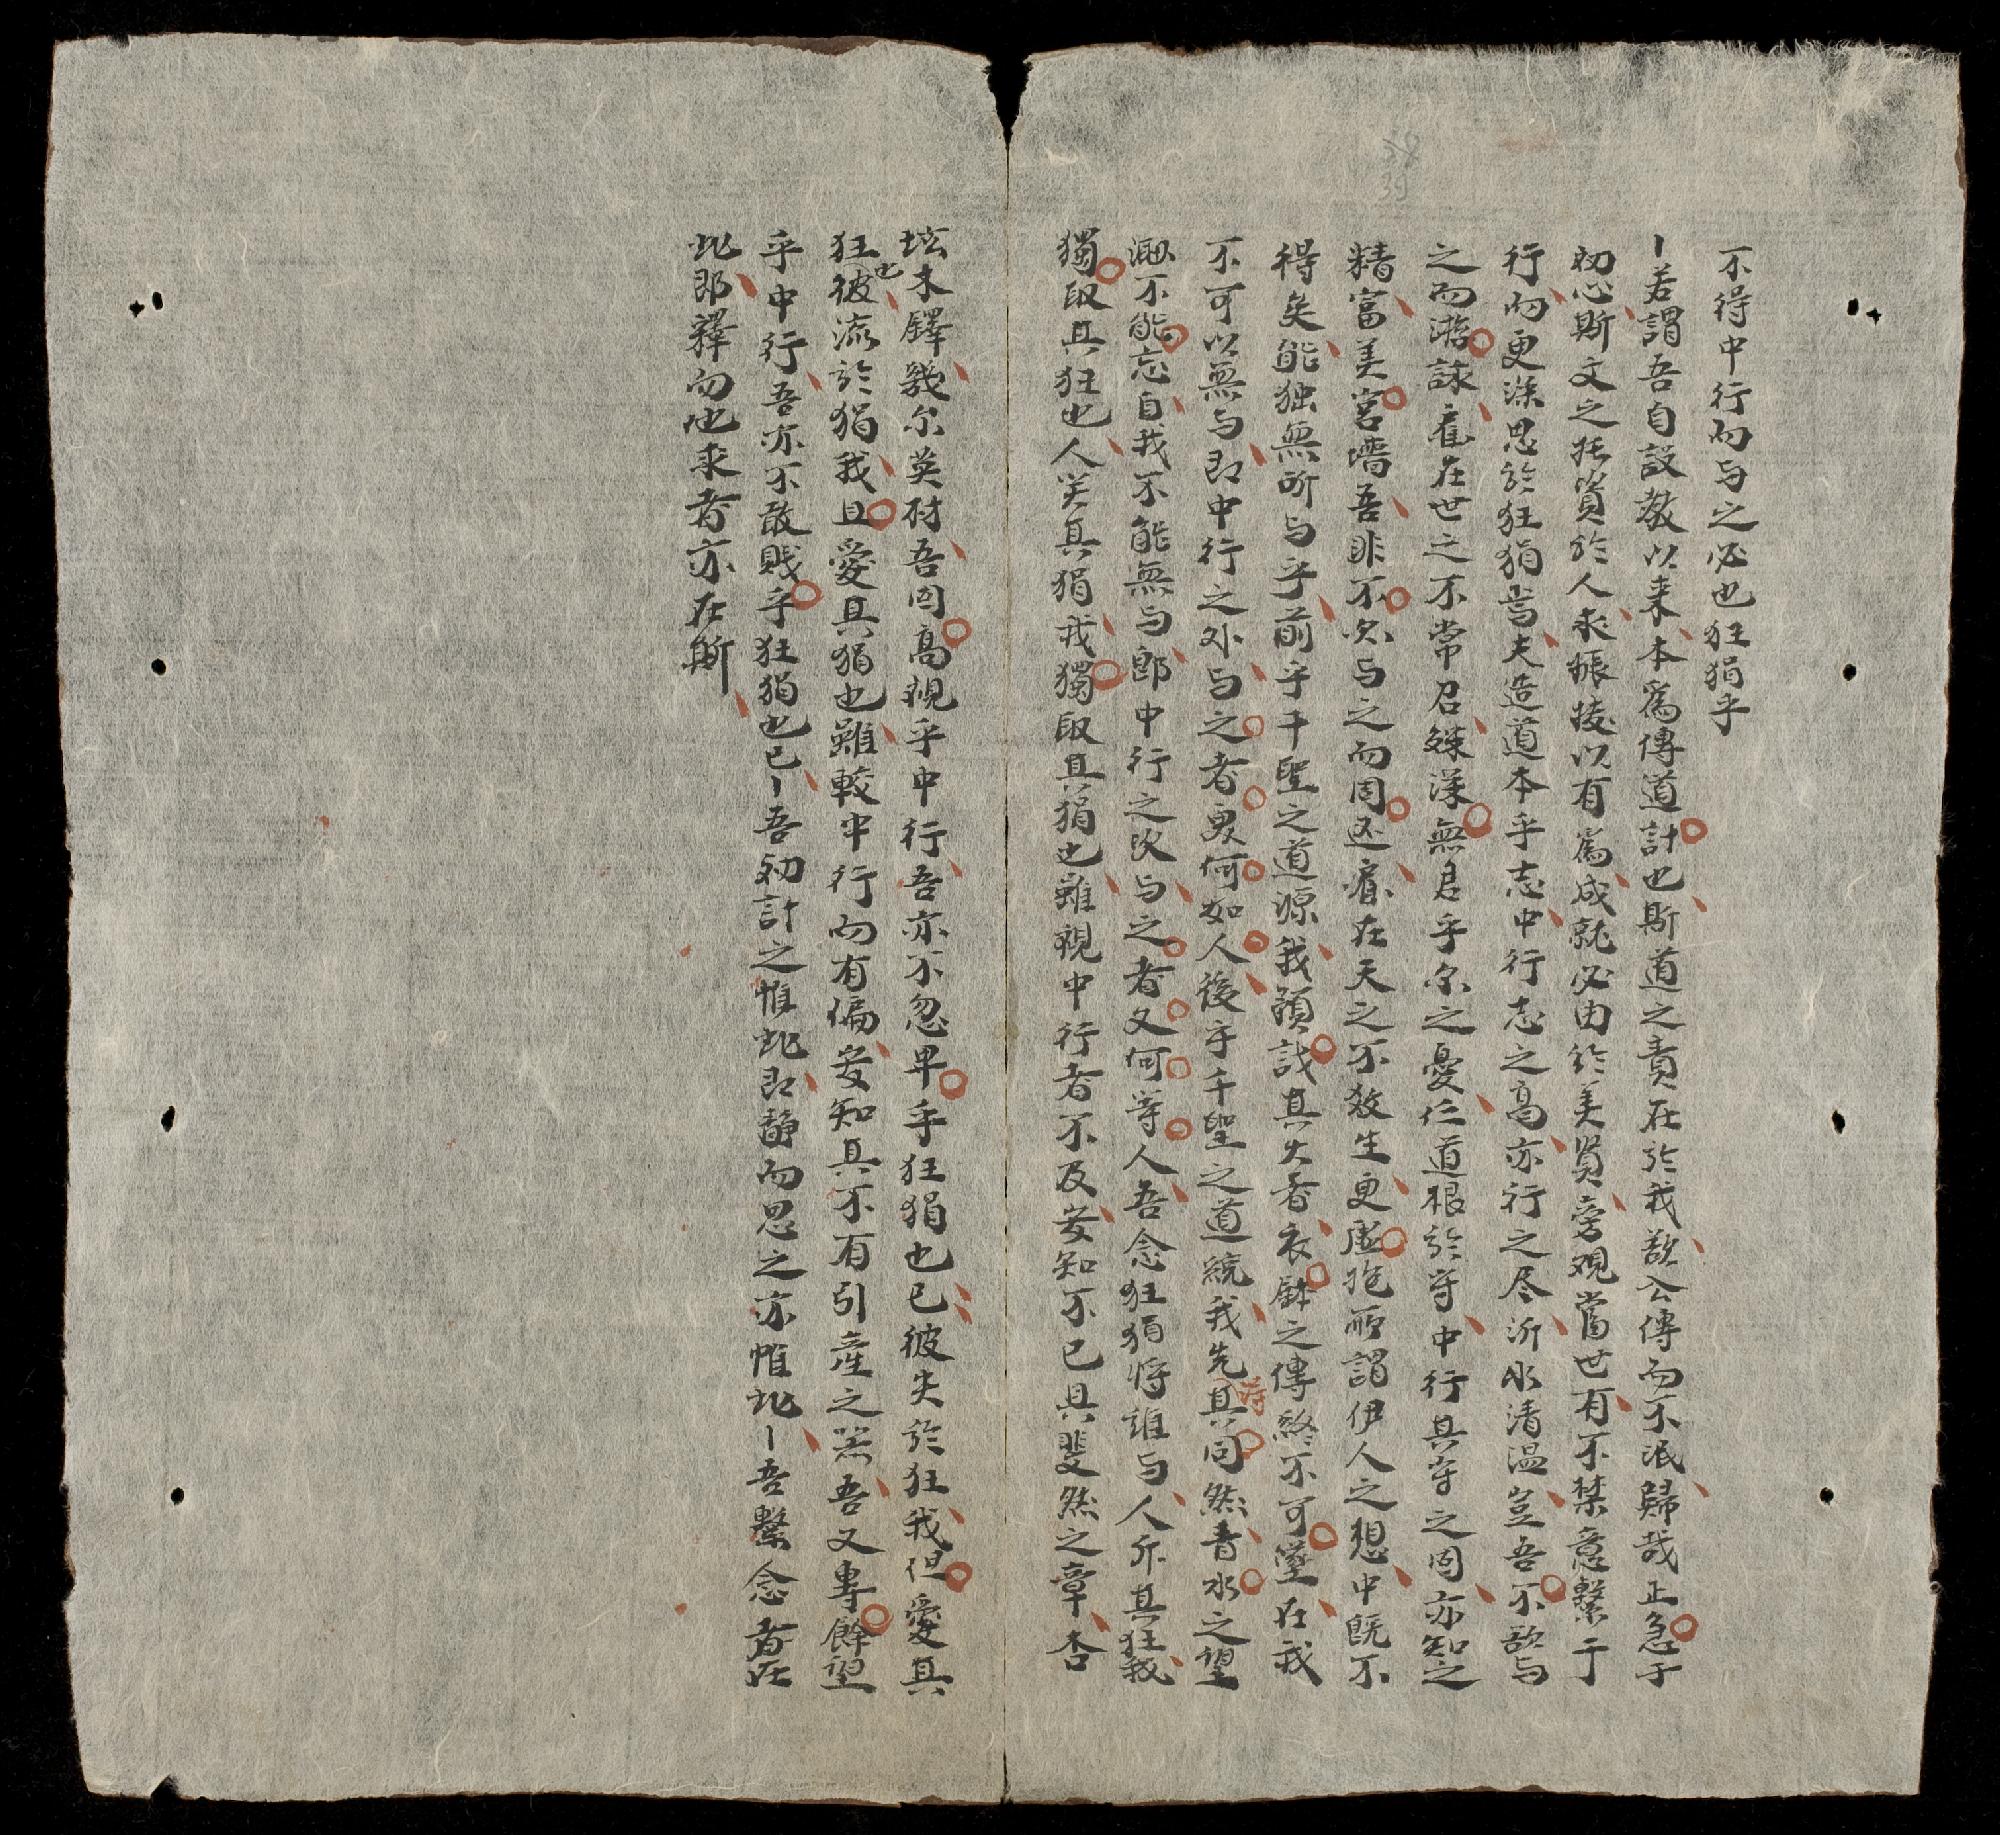 不得中行而与之必也狂狷乎
若謂吾自設教以来本爲傳道計也斯道之責在於我欲公傳而不泯歸哉正急于
初心斯文之托資於人永振接以有爲成就必由於美質旁观當世有不禁意繫于
行而更深思於狂狷焉夫造道本乎志中行志之高亦行之尽沂水清温豈吾不欲与
之而游詠雇在世之不常召殊深無君乎尔之憂仁道根於守中行其守之固亦知之
精富美宮墻吾非不欠与之而周还雇在天之不数生更虚抱而謂伊人之想中既不
得矣能独無所与乎前乎千聖之道源我頼誠其大着衣鉢之傳終不可墜在我
不可以無与即中行之外与之者果何如人後乎千聖之道統我先其同然青氷之望
不能忘自我不能無与郎中行之次与之者又何等人吾念狂狷将誰与人斥其狂我
獨取其狂也人笑其狷我獨取其狷也雖視中行者不及安知不已具斐然之章杏
坛木鐸幾尔英材吾固高視乎中行吾亦不忽卑乎狂狷也已彼失於狂我但愛其
狂也彼流於狷我且愛其狷也雖較中行而有偏安知其不有引産之兆吾又專餘望
乎中行吾亦不敢賎乎狂狷也已吾初計之惟此即静而思之亦惟此吾繫念者在
此即釋而也求者亦在斯